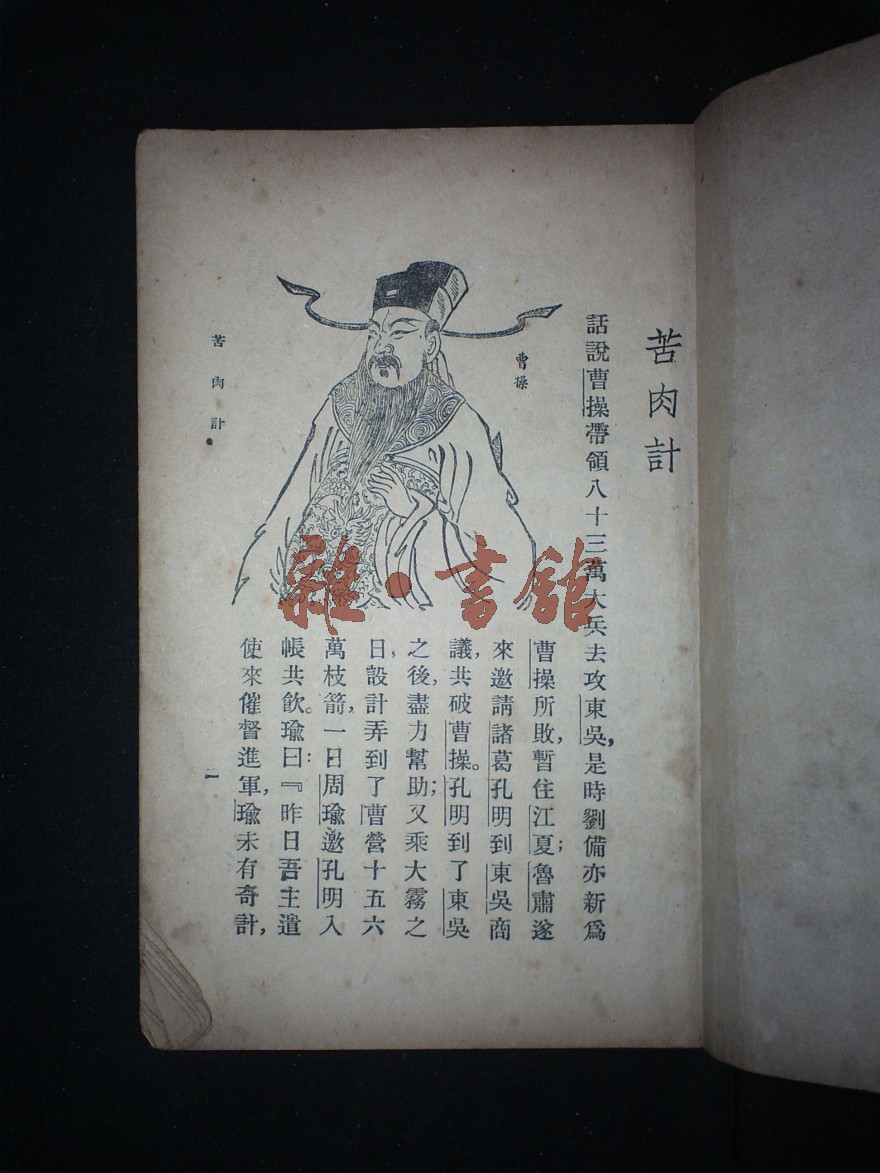 苦肉計
話說曹操帶領八十三萬大兵去攻東吳，是時劉備亦新爲
曹操所敗，暫住江夏；魯肅遂
來邀請諸葛孔明到東吳商
議，共破曹操。孔明到了東吳
之後，盡力幫助；又乘大霧之
日，設計弄到了曹營十五六
萬枝箭，一日周瑜邀孔明入
帳共飲。瑜曰：『昨日吾主遣
使來催督進軍，瑜未有奇計，
曹操
苦肉計
一
雜·書館